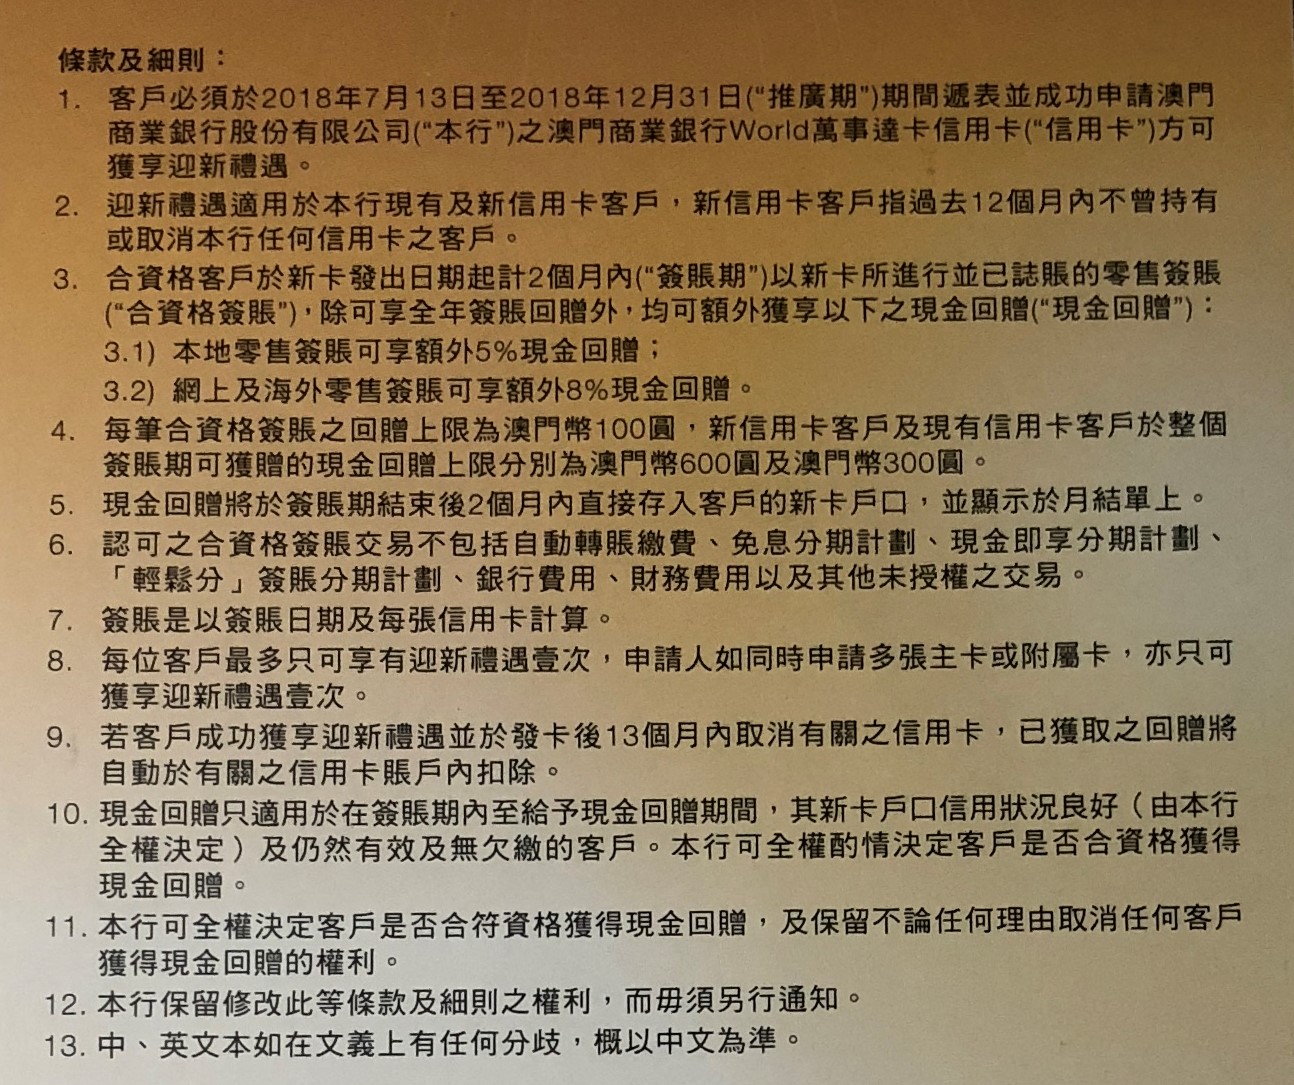 條款及細則：
1. 客戶必須於2018年7月13日至2018年12月31日(“推廣期”)期間遞表並成功申請澳門
商業銀行股份有限公司(“本行”)之澳門商業銀行World萬事達卡信用卡(“信用卡”)方可
獲享迎新禮遇。
2. 迎新禮遇適用於本行現有及新信用卡客戶，新信用卡客戶指過去12個月內不曾持有
或取消本行任何信用卡之客戶。
3. 合資格客戶於新卡發出日期起計2個月內(“簽賬期”)以新卡所進行並已誌賬的零售簽賬
(“合資格簽賬”)，除可享全年簽賬回贈外，均可額外獲享以下之現金回贈(“現金回贈”)：
3.1) 本地零售簽賬可享額外5%現金回贈；
3.2) 網上及海外零售簽賬可享額外8%現金回贈。
4. 每筆合資格簽賬之回贈上限為澳門幣100圓，新信用卡客戶及現有信用卡客戶於整個
簽賬期可獲贈的現金回贈上限分別為澳門幣600圓及澳門幣300圓。
5. 現金回贈將於簽賬期結束後2個月內直接存入客戶的新卡戶口，並顯示於月結單上。
6. 認可之合資格簽賬交易不包括自動轉賬繳費、免息分期計劃、現金即享分期計劃、
「輕鬆分」簽賬分期計劃、銀行費用、財務費用以及其他未授權之交易。
7. 簽賬是以簽賬日期及每張信用卡計算。
8. 每位客戶最多只可享有迎新禮遇壹次，申請人如同時申請多張主卡或附屬卡，亦只可
獲享迎新禮遇壹次。
9. 若客戶成功獲享迎新禮遇並於發卡後13個月內取消有關之信用卡，已獲取之回贈將
自動於有關之信用卡賬戶內扣除。
10. 現金回贈只適用於在簽賬期內至給予現金回贈期間，其新卡戶口信用狀況良好（由本行
全權決定）及仍然有效及無欠繳的客戶。本行可全權酌情決定客戶是否合資格獲得
現金回贈。
11. 本行可全權決定客戶是否合符資格獲得現金回贈，及保留不論任何理由取消任何客戶
獲得現金回贈的權利。
12. 本行保留修改此等條款及細則之權利，而毋須另行通知。
13. 中、英文本如在文義上有任何分歧，概以中文為準。